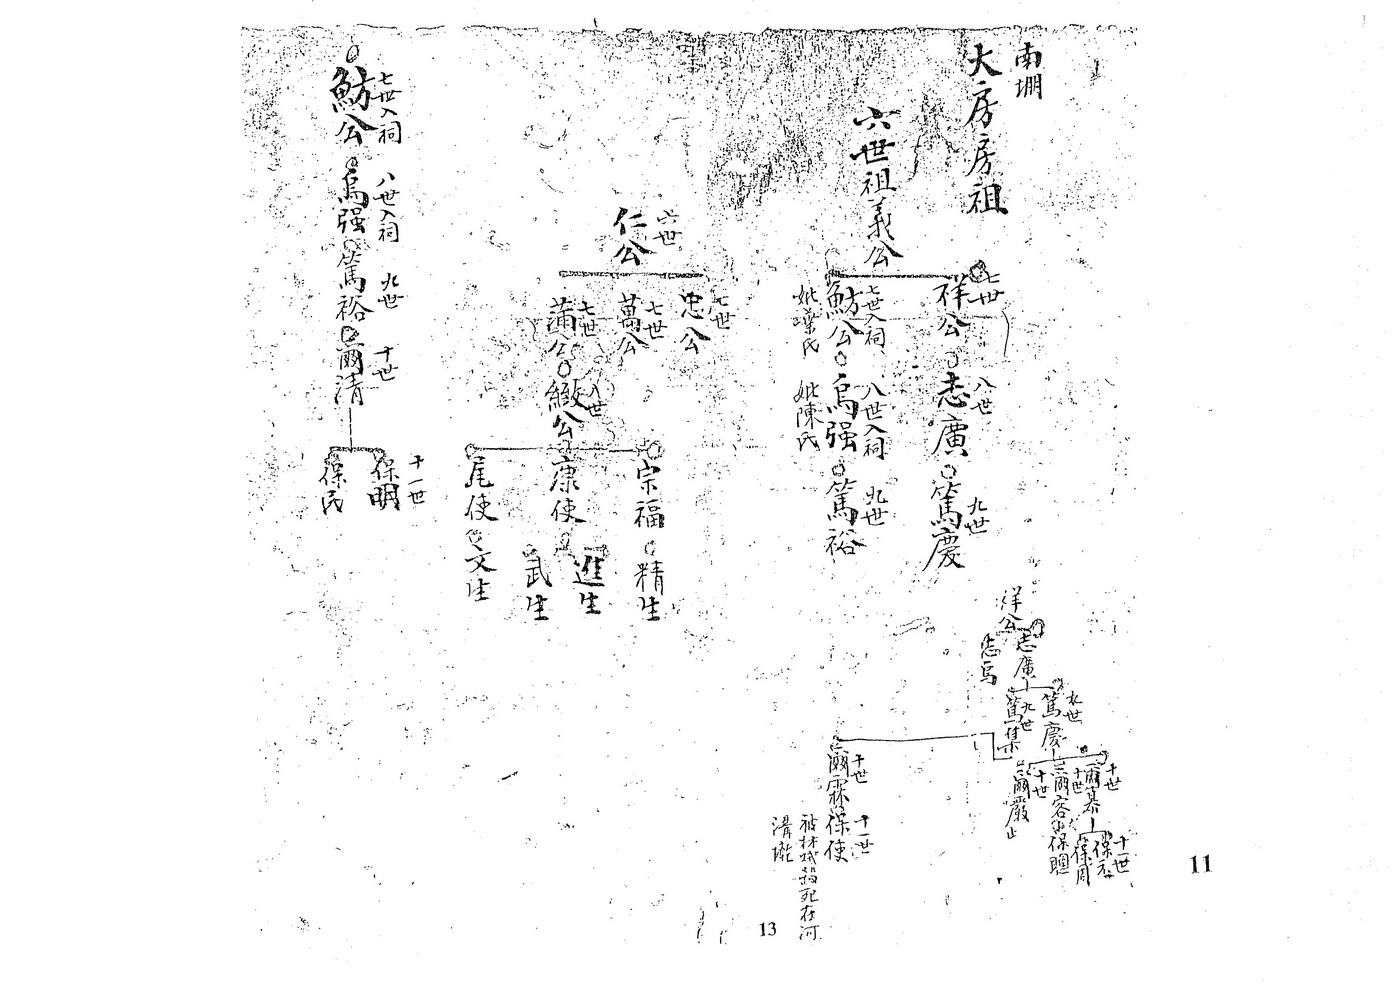 南堋
大房房祖
六世祖義公
七世
祥公
八世
志廣
九世
篤慶
七世入祠
魴公
妣葉氏
八世入祠
烏强
妣陳氏
九世
篤裕
六世
仁公
七世
忠公
七世
萬公
七世
蒲公
八世
緻公
宗福
精生
康使
進生
武生
尾使
文生
七世入祠
魴公
八世入祠
烏强
九世
篤裕
十世
爾清
十一世
保明
保民
祥公
志廣
志烏
九世
篤慶
九世
篤集
十世
爾基
十世
爾容
保聰
十世
爾嚴止
十一世
保
保周
十世
爾霖
十一世
保使
被林 殺死在河
溝
13
11